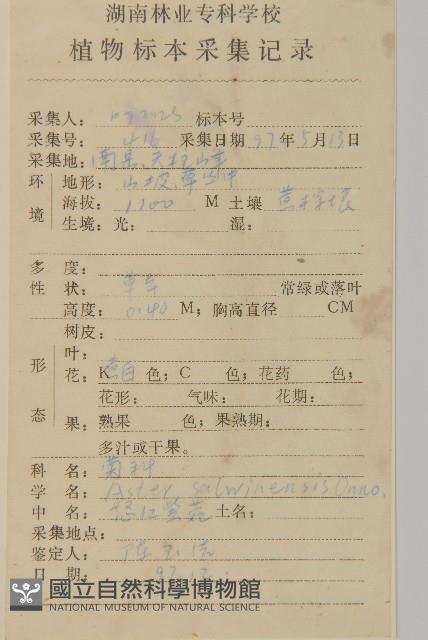 湖南林业专科学校
植物标本采集记录
采集人： 标本号
采集号： 416 采集日期 97年5月13日
采集地：
环境 地形： 山坡,草丛中
海拔： 1100 M 土壤 黄棕壤
生境：光： 湿：
多度：
性状： 草本 常绿或落叶
高度： 0.40 M；胸高直径 CM
树皮：
形态 叶：
花：K 白 色；C 色；花药 色；
花形： 气味： 花期：
果：熟果 色；果熟期：
多汁或干果。
科名： 菊科
学名： Aster salwinensis Onno.
中名： 怒江紫菀 土名：
采集地点：
鉴定人：
日期： 97.12.
國立自然科學博物館
NATIONAL MUSEUM OF NATURAL SCIENCE